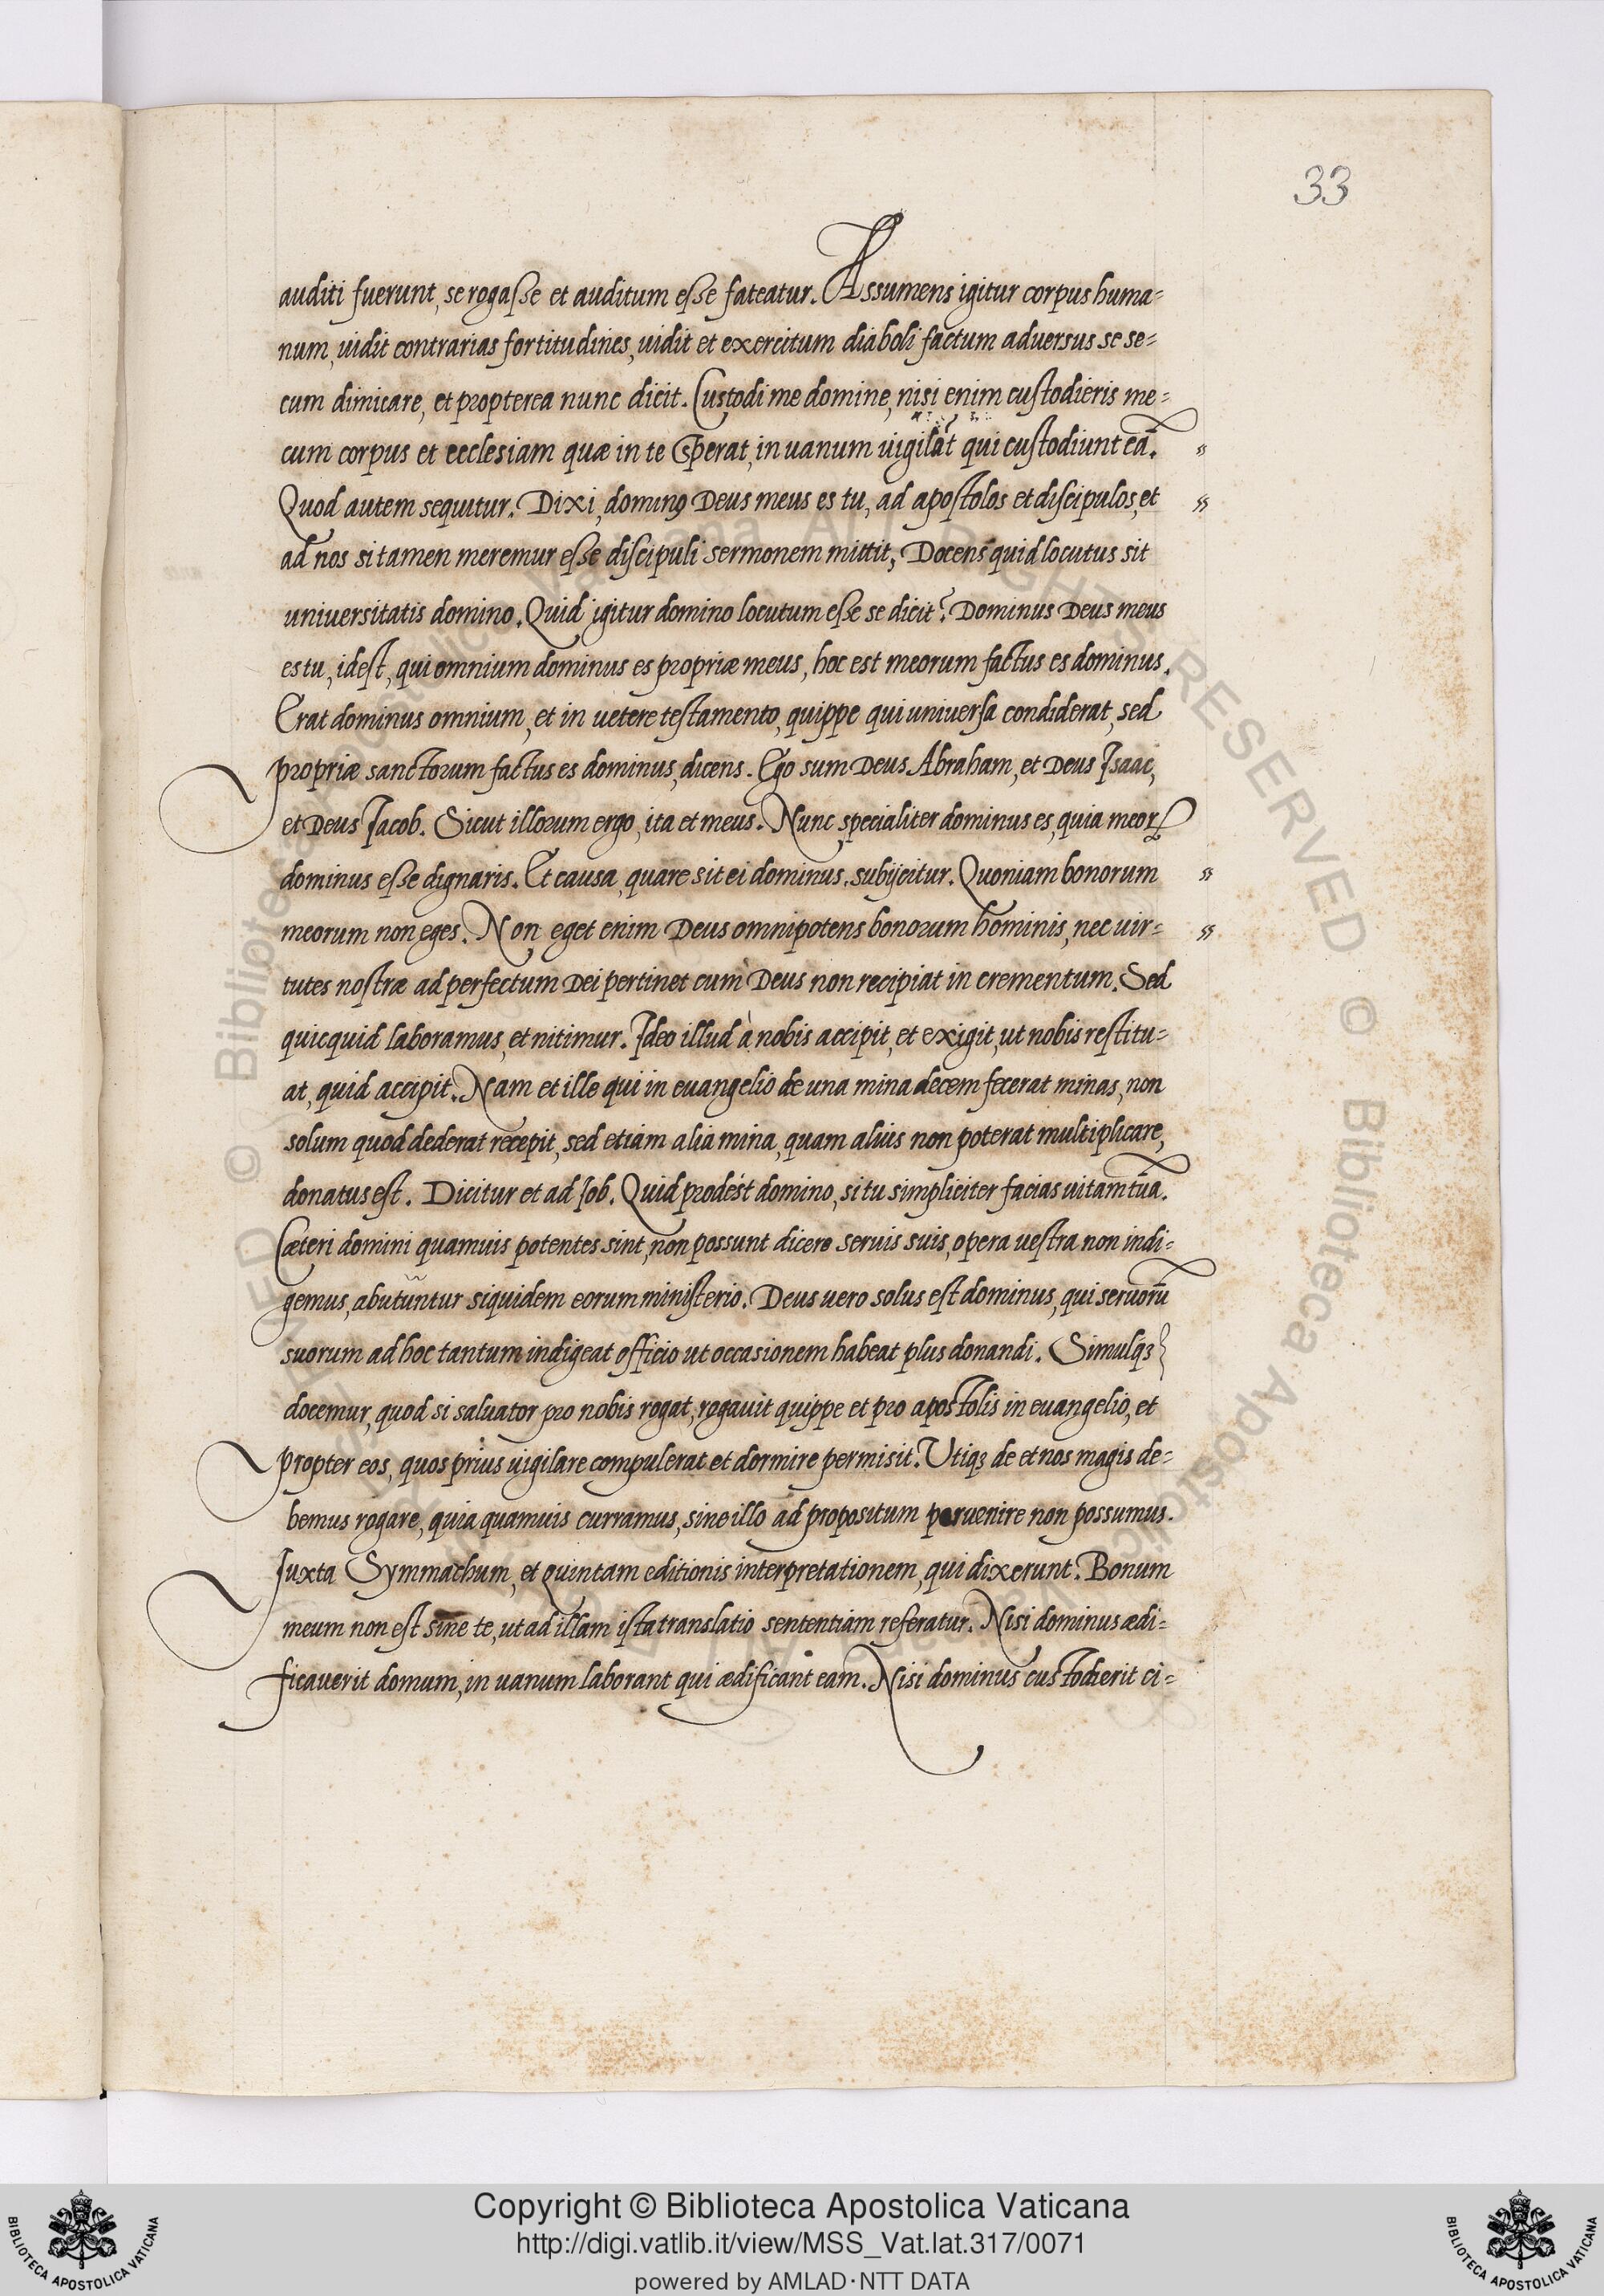 33
auditi fuerunt, se rogasse et auditum esse fateatur. Assumens igitur corpus huma-
num, uidit contrarias fortitudines, uidit et exercitum diaboli factum aduersus se se-
cum dimicare, et propterea nunc dicit. Custodi me domine, nisi enim custodieris me-
cum corpus et ecclesiam quæ in te sperat, in uanum uigilãt qui custodiunt eã.
Quod autem sequitur. Dixi, domino Deus meus es tu, ad apostolos et discipulos, et
ad nos si tamen meremur esse discipuli sermonem mittit, Docens quid locutus sit
uniuersitatis domino. Quid igitur domino locutum esse se dicit? Dominus Deus meus
es tu, idest, qui omnium dominus es propriæ meus, hoc est meorum factus es dominus.
Erat dominus omnium, et in uetere testamento, quippe qui uniuersa condiderat, sed
propriæ sanctorum factus es dominus, dicens. Ego sum Deus Abraham, et Deus Isaac,
et Deus Jacob. Sicut illorum ergo, ita et meus. Nunc specialiter dominus es, quia meorꝝ
dominus esse dignaris. Et causa, quare sit ei dominus. subijcitur. Quoniam bonorum
meorum non eges. Non eget enim Deus omnipotens bonorum hominis, nec uir-
tutes nostræ ad perfectum Dei pertinet cum Deus non recipiat in crementum. Sed
quicquid laboramus, et nitimur. Ideo illud à nobis accipit, et exigit, ut nobis restitu-
at, quid accipit. Nam et ille qui in euangelio de una mina decem fecerat minas, non
solum quod dederat recepit, sed etiam alia mina, quam alius non poterat multiplicare,
donatus est. Dicitur et ad Job. Quid prodest domino, si tu simpliciter facias uitam tũa.
Cæteri domini quamuis potentes sint, non possunt dicere seruis suis, opera uestra non indi-
gemus, abutuntur siquidem eorum ministerio. Deus uero solus est dominus, qui seruorũ
suorum ad hoc tantum indigeat officio ut occasionem habeat plus donandi. Simulqꝫ
docemur, quod si saluator pro nobis rogat, rogauit quippe et pro apostolis in euangelio, et
propter eos, quos prius uigilare compulerat et dormire permisit. Utiqꝫ de et nos magis de-
bemus rogare, quia quamuis curramus, sine illo ad propositum peruenire non possumus.
Juxta Symmachum, et quintam editionis interpretationem, qui dixerunt. Bonum
meum non est sine te, ut ad illam ista translatio sententiam referatur. Nisi dominus ædi-
ficauerit domum, in uanum laborant qui ædificant eam. Nisi dominus custodierit ci-
Copyright © Biblioteca Apostolica Vaticana
http://digi.vatlib.it/view/MSS_Vat.lat.317/0071
powered by AMLAD·NTT DATA
BIBLIOTECA APOSTOLICA VATICANA
BIBLIOTECA APOSTOLICA VATICANA